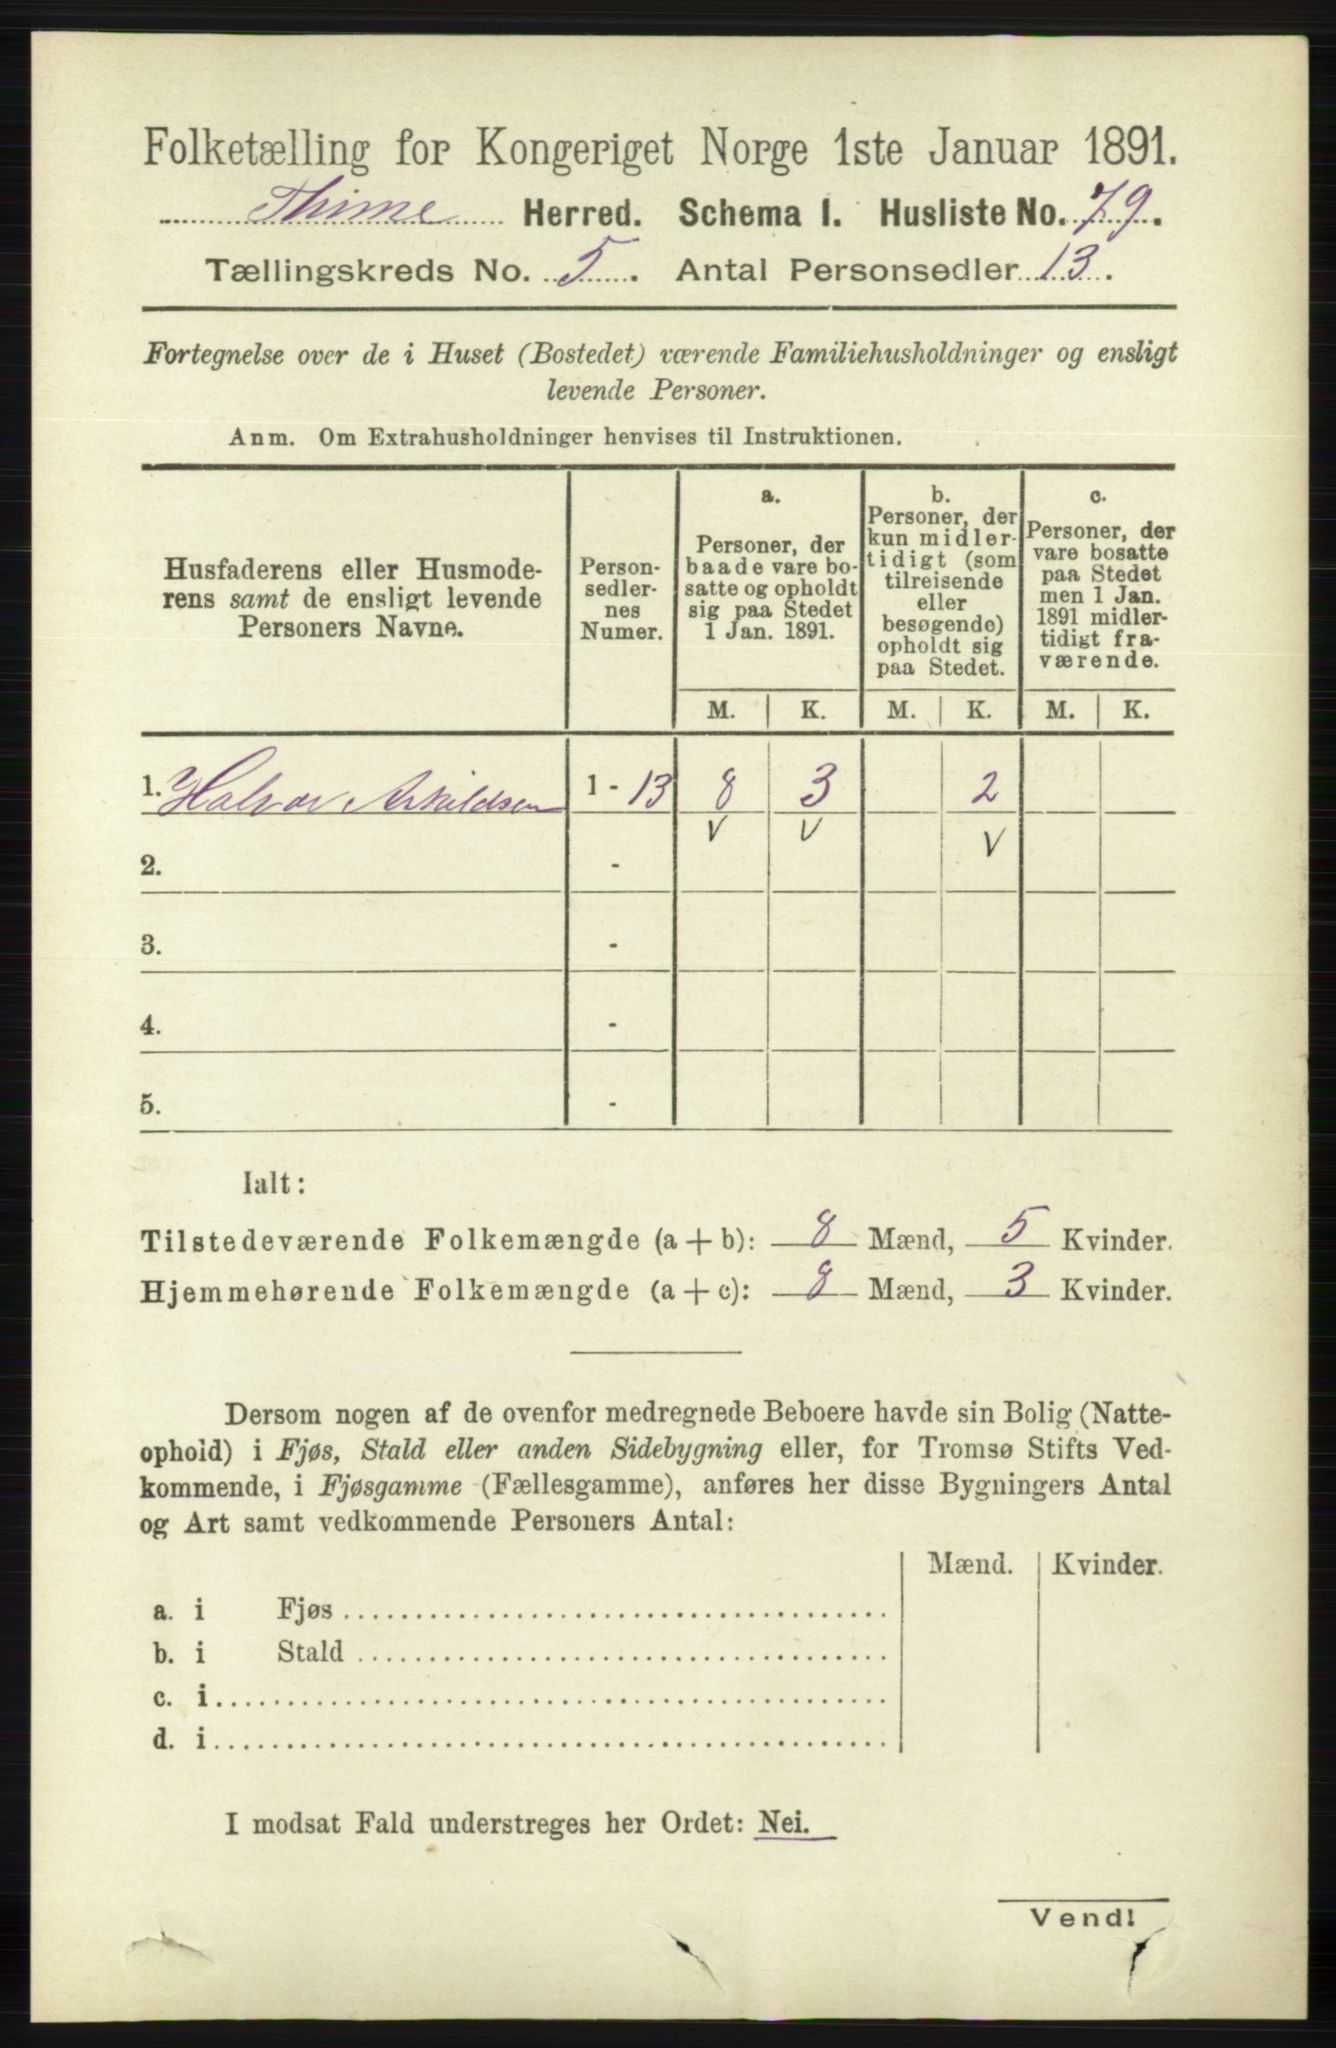 Folketælling for Kongeriget Norge 1ste Januar 1891.
Thime Herred. Schema I. Husliste No. 79.
Tællingskreds No. 5. Antal Personsedler 13.
Fortegnelse over de i Huset (Bostedet) værende Familiehusholdninger og ensligt
levende Personer.
Anm. Om Extrahusholdninger henvises til Instruktionen.
Husfaderens eller Husmode-
rens samt de ensligt levende
Personers Navne.
Person-
sedler-
nes
Numer.
a.
Personer, der
baade vare bo-
satte og opholdt
sig paa Stedet
1 Jan. 1891.
b.
Personer, der
kun midler-
tidigt (som
tilreisende
eller
besøgende)
opholdt sig
paa Stedet.
c.
Personer, der
vare bosatte
paa Stedet
men 1 Jan.
1891 midler-
tidigt fra-
værende.
M. K. M. K. M. K.
1. Halvor Askildsen 1 - 13 8 3 2
V V V
2. -
3. -
4. -
5. -
Ialt:
Tilstedeværende Folkemængde (a + b): 8 Mænd, 5 Kvinder.
Hjemmehørende Folkemængde (a + c): 8 Mænd, 3 Kvinder.
Dersom nogen af de ovenfor medregnede Beboere havde sin Bolig (Natte-
ophold) i Fjøs, Stald eller anden Sidebygning eller, for Tromsø Stifts Ved-
kommende, i Fjøsgamme (Fællesgamme), anføres her disse Bygningers Antal
og Art samt vedkommende Personers Antal:
Mænd. Kvinder.
a. i Fjøs
b. i Stald
c. i
d. i
I modsat Fald understreges her Ordet: Nei.
Vend!